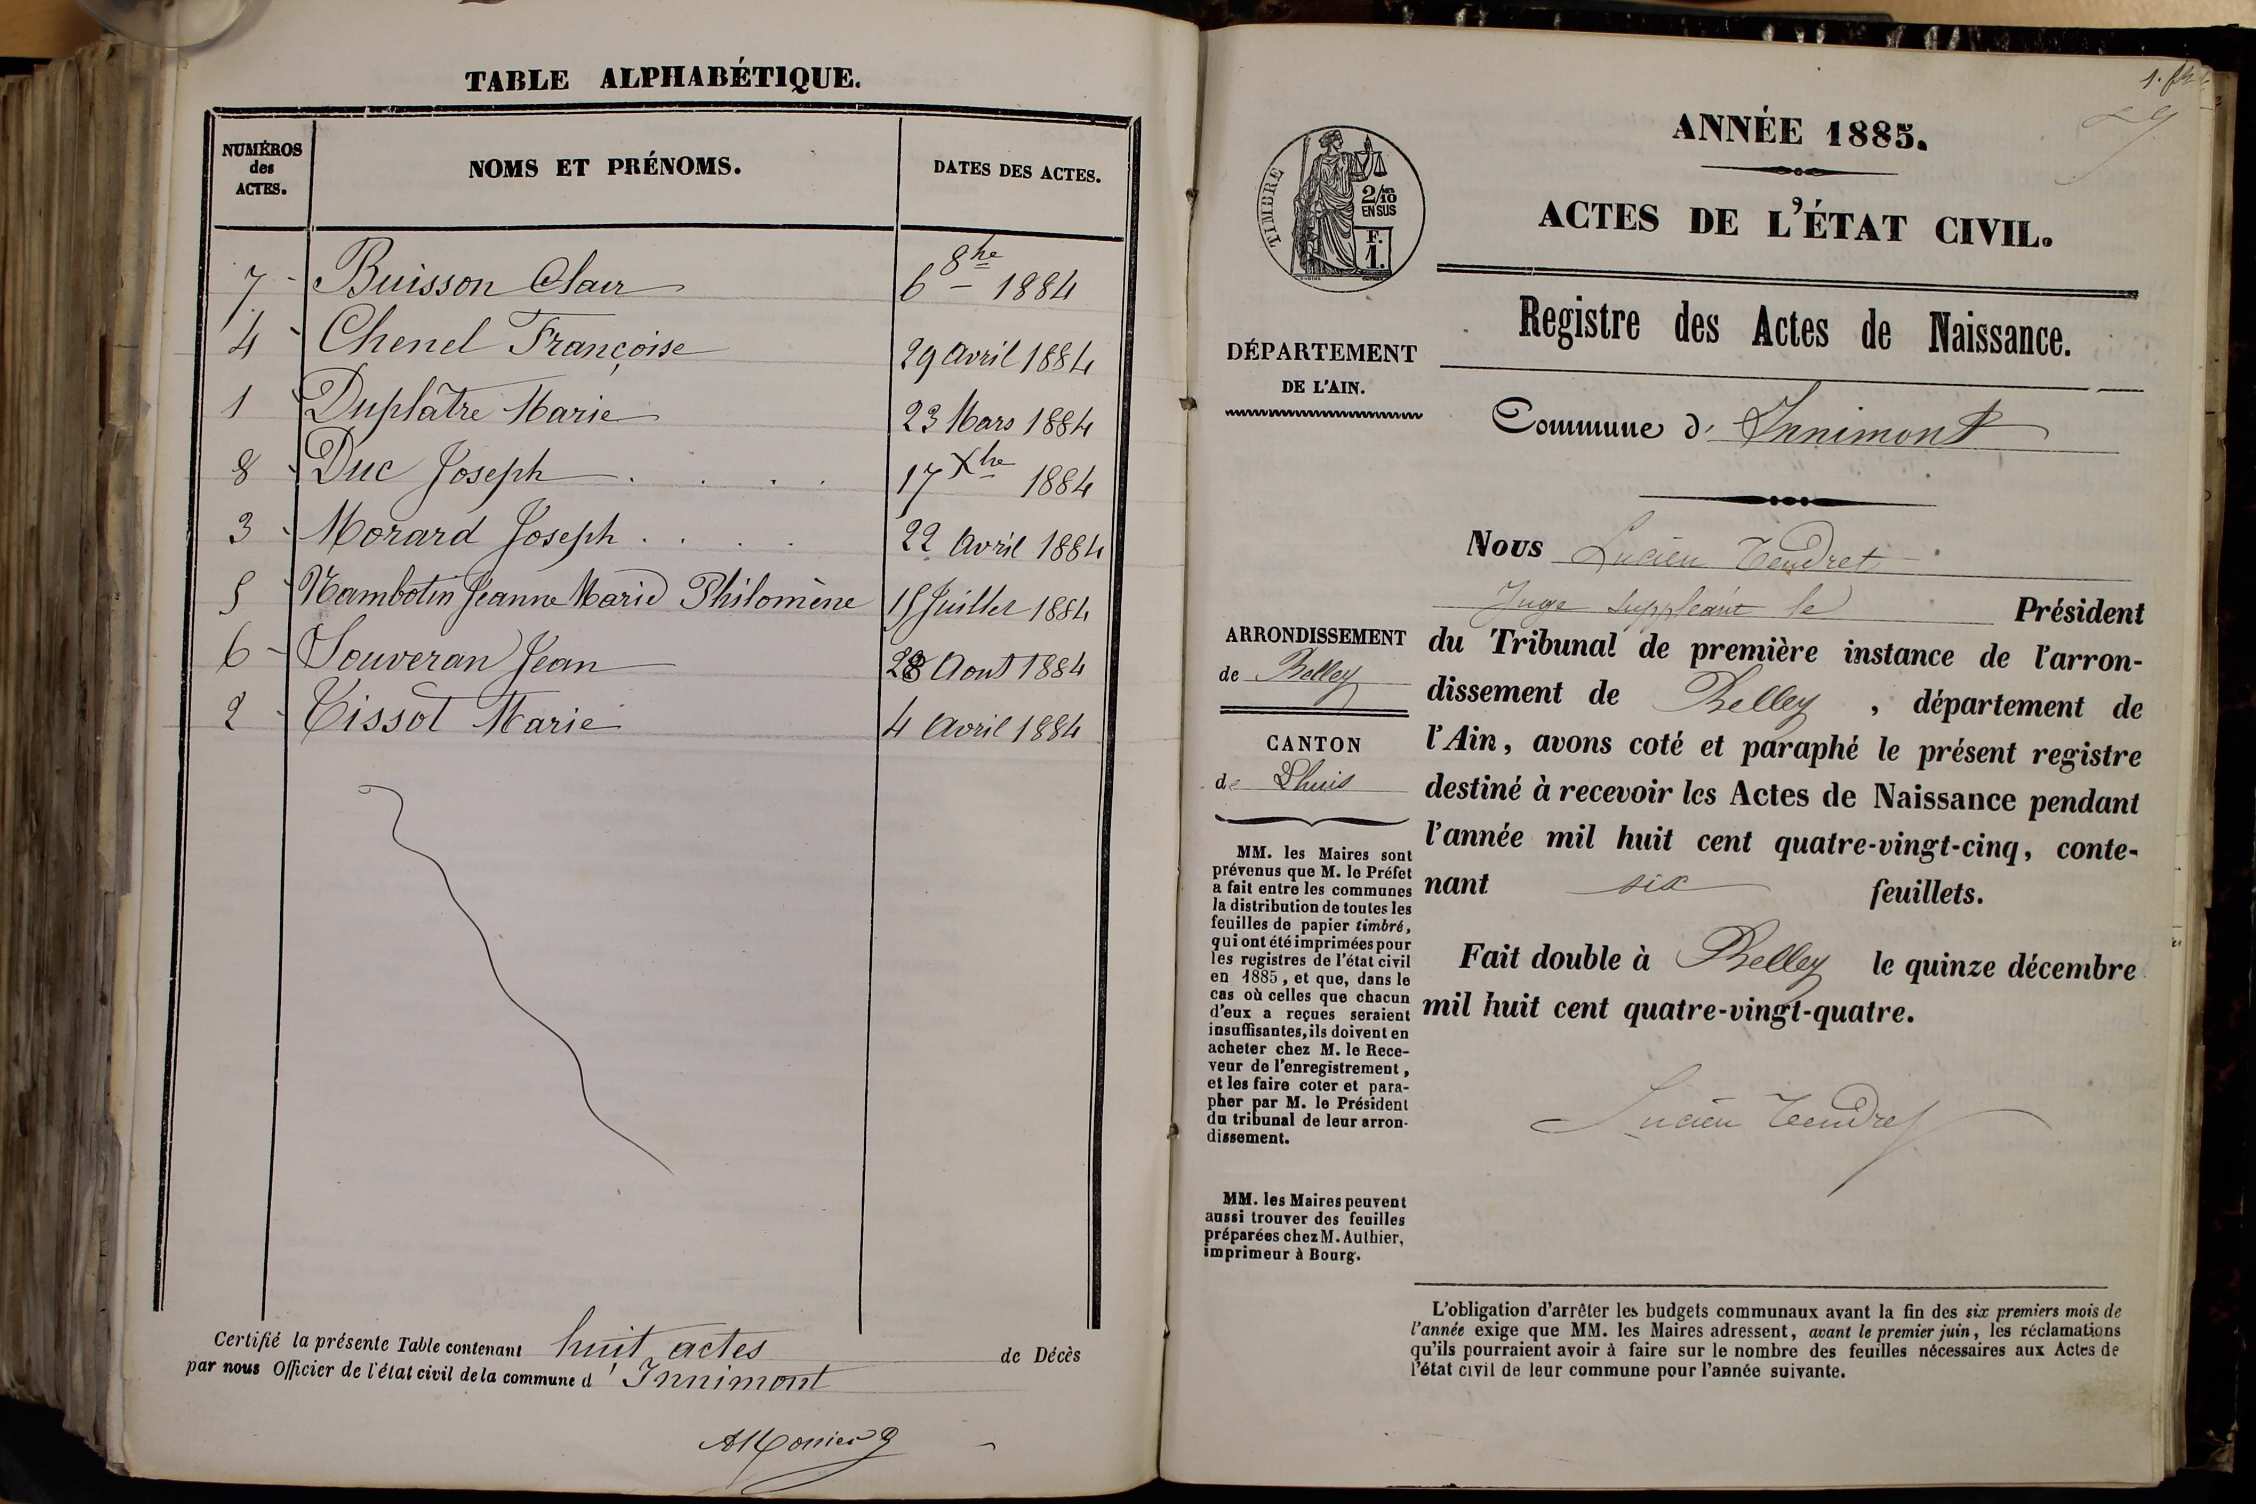 TABLE ALPHABÉTIQUE.
NUMÉROS des ACTES.
NOMS ET PRÉNOMS.
DATES DES ACTES.
7 - Buisson Clair 6 8bre 1884
4 - Chenel Françoise 29 Avril 1884
1 - Duplâtre Marie 23 Mars 1884
8 - Duc Joseph . . . . 17 Xbre 1884
3 - Morard Joseph . . . . 22 Avril 1884
5 - Nambotin Jeanne Marie Philomène 15 Juillet 1884
6 - Souveran Jean 28 Aout 1884
2 - Tissot Marie 4 Avril 1884
Certifié la présente Table contenant huit actes de Décès
par nous Officier de l'état civil de la commune d'Innimont
ANNÉE 1885.
ACTES DE L'ÉTAT CIVIL.
TIMBRE
2/10 EN SUS
F. 1.
Registre des Actes de Naissance.
DÉPARTEMENT
DE L'AIN.
Commune d'Innimont
Nous Lucien Tendret
Juge suppléant le Président
du Tribunal de première instance de l'arron-
dissement de Belley, département de
l'Ain, avons coté et paraphé le présent registre
destiné à recevoir les Actes de Naissance pendant
l'année mil huit cent quatre-vingt-cinq, conte-
nant six feuillets.
Fait double à Belley le quinze décembre
mil huit cent quatre-vingt-quatre.
Lucien Tendret
ARRONDISSEMENT
de Belley
CANTON
de Lhuis
MM. les Maires sont
prévenus que M. le Préfet
a fait entre les communes
la distribution de toutes les
feuilles de papier timbré,
qui ont été imprimées pour
les registres de l'état civil
en 1885, et que, dans le
cas où celles que chacun
d'eux a reçues seraient
insuffisantes, ils doivent en
acheter chez M. le Rece-
veur de l'enregistrement,
et les faire coter et para-
pher par M. le Président
du tribunal de leur arron-
dissement.
MM. les Maires peuvent
aussi trouver des feuilles
préparées chez M. Authier,
imprimeur à Bourg.
L'obligation d'arrêter les budgets communaux avant la fin des six premiers mois de
l'année exige que MM. les Maires adressent, avant le premier juin, les réclamations
qu'ils pourraient avoir à faire sur le nombre des feuilles nécessaires aux Actes de
l'état civil de leur commune pour l'année suivante.